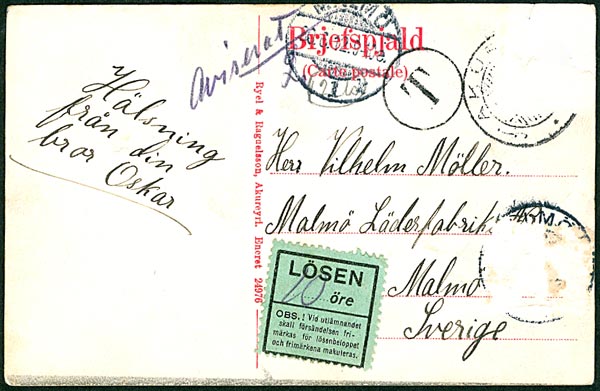 Hälsning
från din
bror
Oskar
Aviserat
Brjefspjald
(Carte postale)
T
Herr Vilhelm Möller.
Malmö Läderfabrik
Malmö
Sverige
Ryel & Ragnelsson, Akureyri. Eneret 24976
LÖSEN
10 öre
OBS.! Vid utlämnandet
skall försändelsen fri-
märkas för lösenbeloppet
och frimärkena makuleras.